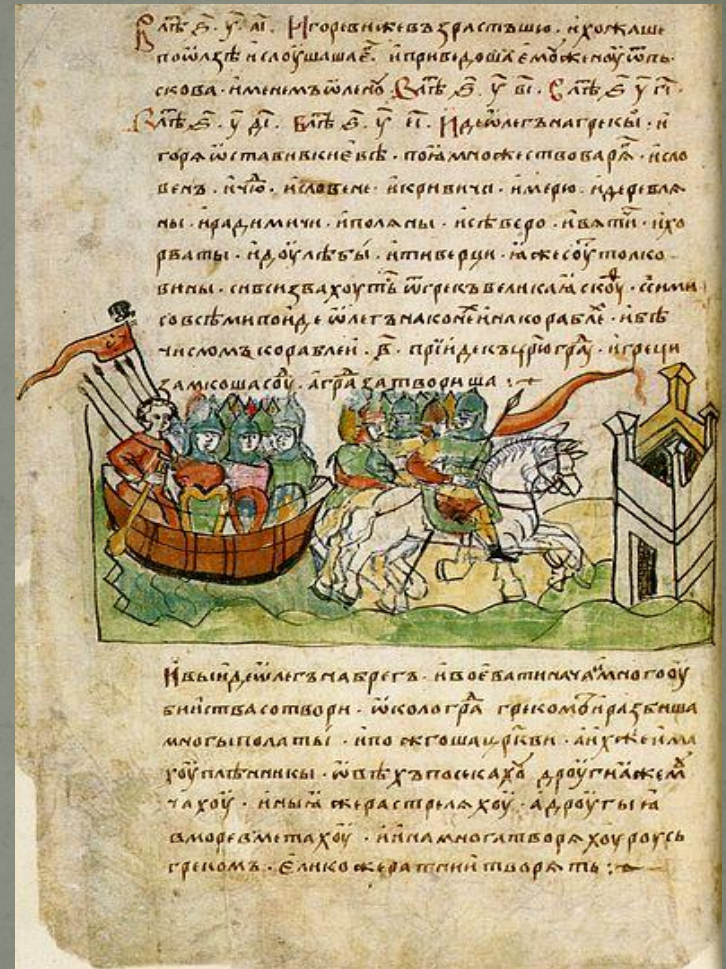 В лѣⷮ ҂ѕ҃. у҃. аı҃. Игоревижевъзрастъшю. ихожаше
поѡлзѣ ислоушашаеⷢ. иприведошаемоу женоу ѿпь
скова. именемъ ѡленоу. В лѣⷮ ҂ѕ҃. у҃ вı҃. В лѣⷮ ҂ѕ҃ у҃ гı҃.
В лѣⷮ ҂ѕ҃. у҃ дı҃. В лѣⷮ ҂ѕ҃. у҃ еı҃. Иде ѡлегънагрекы. и
горѧ ѡставивкиевѣ. поꙗ множествоварѧⷢ. исло
венъ. ичюⷣ. исловене. икривичи. имерю. идеревлѧ
ны. ирадимичи. иполѧны. исѣверо. ивѧтиⷱ. ихо
рваты. идоулѣбы. итиверци. ꙗжесоуⷮ толко
вины. сивсизвахоутьⷭ ѿгрекъвеликаꙗ скоуⷴ. ссими
совсѣмипоиде ѡлегънаконеⷯ инакораблеⷯ. ибѣ
числомъ кораблеи. в҃.приидекъцр҃югра́ⷣ. игреци
замкошасоуⷣ. аграⷣ затвориша :~
Ивыиде ѡлегънабрегъ. ивоеватинача имногооу
биистваcотвори. ѡкологра́ⷣ грекомъ иразбиша
многыполаты. ипожгошацр҃кви. аихжеима
хоуплѣнникы. ѡвѣхъпосекахоу дроугиꙗжемⷱ
чахоу. иныꙗ жерастрелѧхоу. адроугыꙗ
вморевъметахоу. иинамногатворѧхоуроусь
грекомъ. еликожератнии творѧть :~